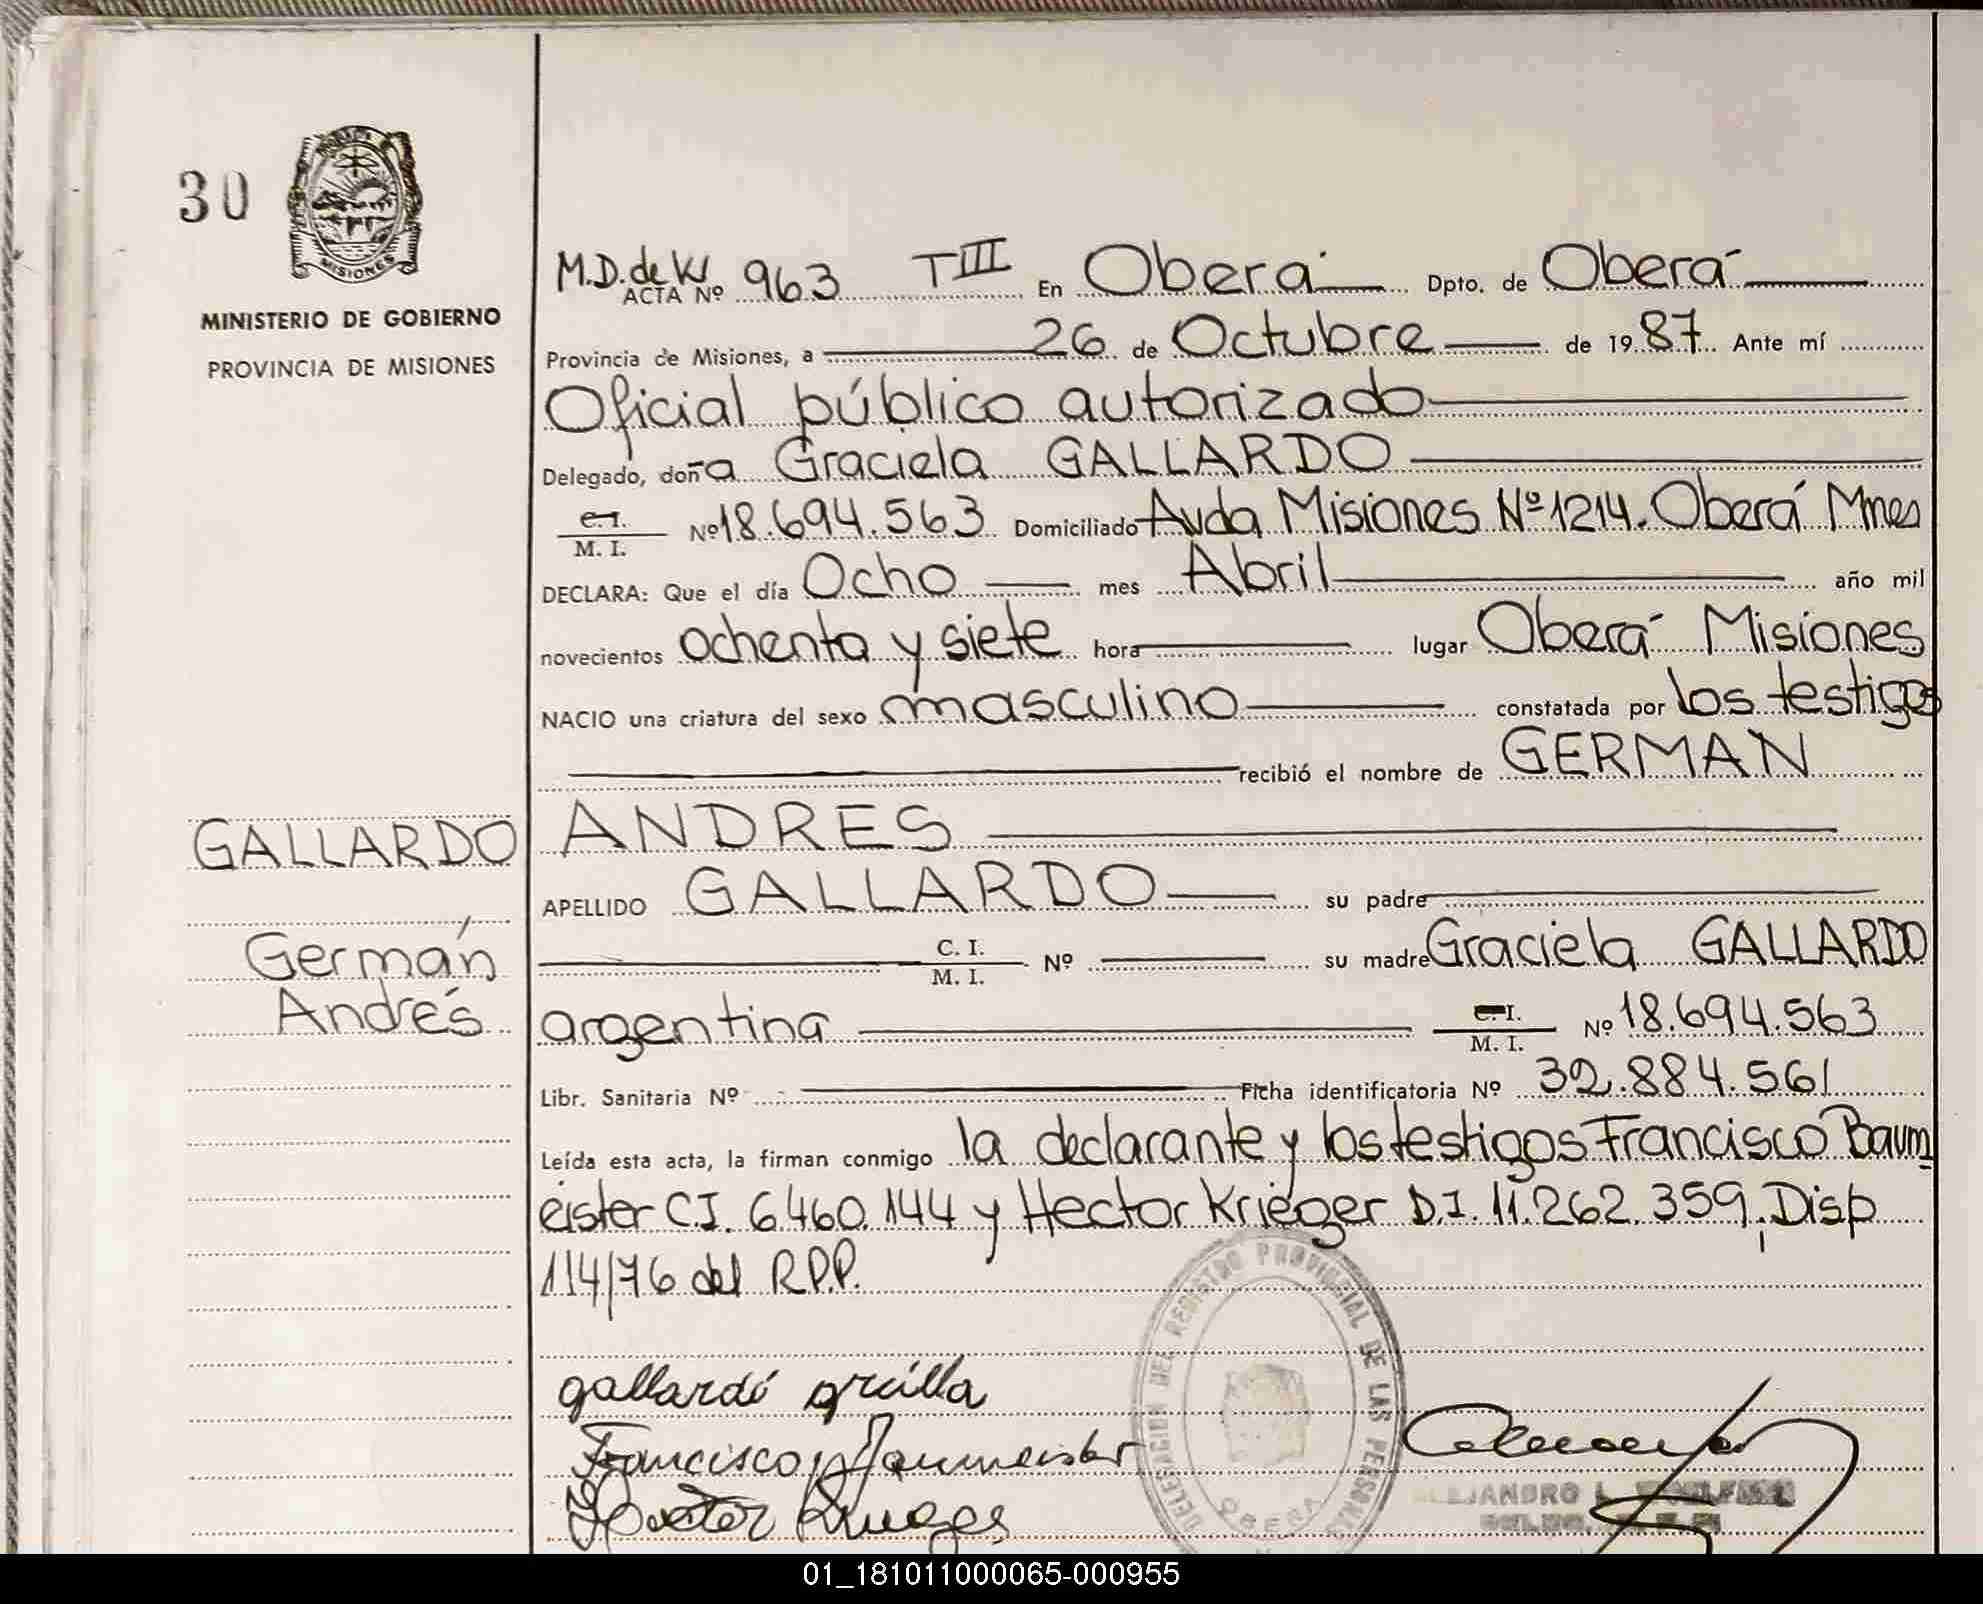 30
MISIONES
MINISTERIO DE GOBIERNO
PROVINCIA DE MISIONES
M.D. de K
ACTA Nº 963 TIII En Oberá Dpto. de Oberá
Provincia de Misiones, a 26 de Octubre de 1987 Ante mí
Oficial público autorizado
Delegado, doña Graciela GALLARDO
C.I. M. I. Nº 18.694.563 Domiciliado Avda Misiones Nº 1214. Oberá Mnes
DECLARA: Que el día Ocho mes Abril año mil
novecientos ochenta y siete hora lugar Oberá Misiones
NACIO una criatura del sexo masculino constatada por los testigos
recibió el nombre de GERMAN
ANDRES
APELLIDO GALLARDO su padre
C. I. M. I. Nº su madre Graciela GALLARDO
argentina C.I. M. I. Nº 18.694.563
Libr. Sanitaria Nº Ficha identificatoria Nº 32.884.561
Leída esta acta, la firman conmigo la declarante y los testigos Francisco Baum
eister C.I. 6.460.144 y Hector Krieger D.I. 11.262.359, Disp
114/76 del R.P.P.
GALLARDO
Germán
Andrés
gallardo
Francisco Baumeister
Hector Krieger
DELEGACION DEL REGISTRO PROVINCIAL DE LAS PERSONAS
OBERA
ALEJANDRO L.
01_181011000065-000955